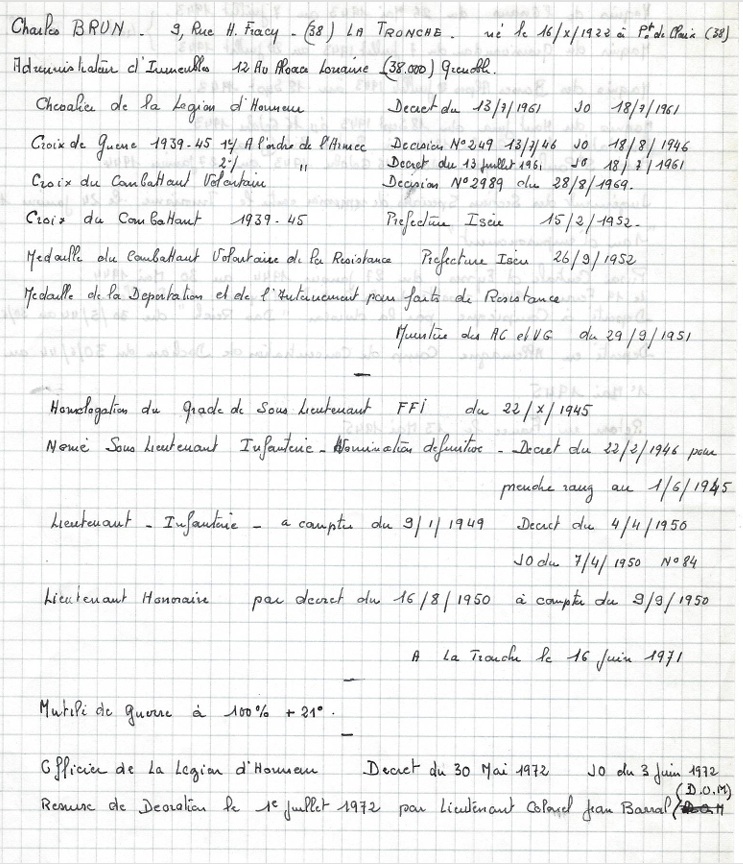 Charles BRUN - 9, Rue H. Fracy - (38) LA TRONCHE - né le 16/X/1922 à Pt. de Claix (38)
Administrateur d'Immeubles 12 Av Alsace Lorraine (38.000) Grenoble.
Chevalier de la Legion d'Honneur Decret du 13/7/1961 JO 18/7/1961
Croix de Guerre 1939-45 1°/ A l'ordre de l'Armee Decision N°249 13/7/46 JO 18/8/1946
2°/ " Decret du 13 juillet 1961 JO 18/7/1961
Croix du Combattant Volontaire Decision N°2989 du 28/8/1969.
Croix du Combattant 1939-45 Prefecture Isère 15/2/1952-
Medaille du Combattant Volontaire de la Resistance Prefecture Isere 26/9/1952
Medaille de la Deportation et de l'Internement pour faits de Resistance
Ministère des AC et VG du 29/9/1951
Homologation du grade de Sous Lieutenant FFI du 22/X/1945
Nomé Sous Lieutenant Infanterie - Nomination definitive - Decret du 22/2/1946 pour
prendre rang au 1/6/1945
Lieutenant - Infanterie - a compter du 9/1/1949 Decret du 4/4/1950
JO du 7/4/1950 N°84
Lieutenant Honoraire par decret du 16/8/1950 à compter du 9/9/1950
A La Tronche le 16 juin 1971
Mutilé de guerre à 100% + 21°.
Officier de La Legion d'Honneur Decret du 30 Mai 1972 JO du 3 juin 1972
(D.O.M)
Remise de Decoration le 1e juillet 1972 par Lieutenant Colonel Jean Barral